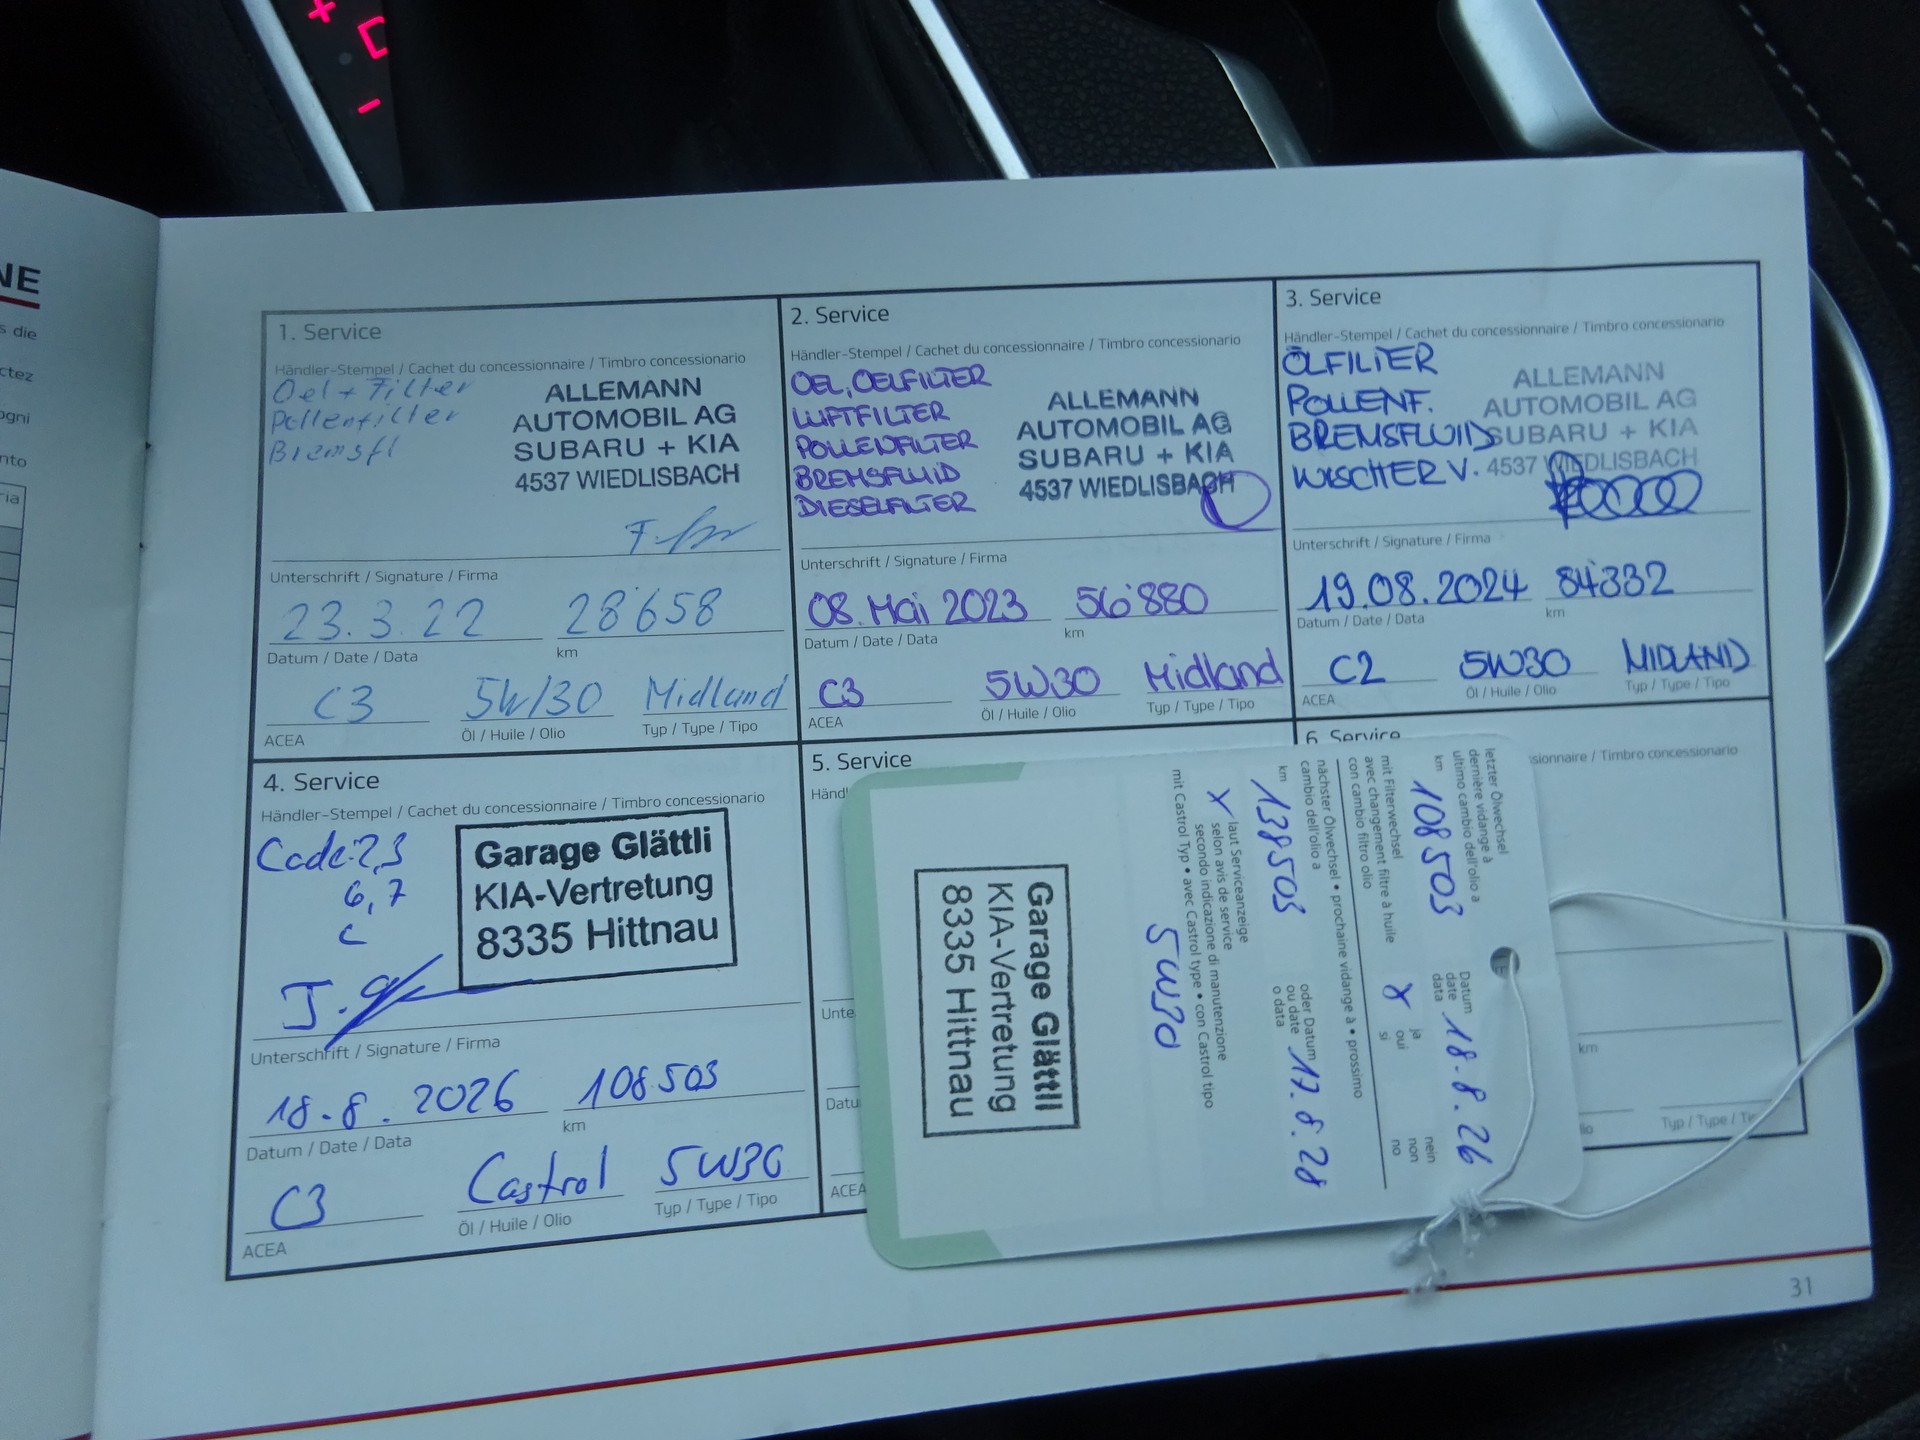 NE
s die
ctez
ogni
nto
ria
1. Service
Händler-Stempel / Cachet du concessionnaire / Timbro concessionario
Oel + Filter
Pollenfilter
Bremsfl
ALLEMANN
AUTOMOBIL AG
SUBARU + KIA
4537 WIEDLISBACH
Unterschrift / Signature / Firma
23.3.22 28'658
Datum / Date / Data km
C3 5W/30 Midland
ACEA Öl / Huile / Olio Typ / Type / Tipo
2. Service
Händler-Stempel / Cachet du concessionnaire / Timbro concessionario
OEL, OELFILTER
LUFTFILTER
POLLENFILTER
BREMSFLUID
DIESELFILTER
ALLEMANN
AUTOMOBIL AG
SUBARU + KIA
4537 WIEDLISBACH
Unterschrift / Signature / Firma
08. Mai 2023 56'880
Datum / Date / Data km
C3 5W30 Midland
ACEA Öl / Huile / Olio Typ / Type / Tipo
3. Service
Händler-Stempel / Cachet du concessionnaire / Timbro concessionario
ÖLFILTER
POLLENF.
BREMSFLUID
WISCHER V.
ALLEMANN
AUTOMOBIL AG
SUBARU + KIA
4537 WIEDLISBACH
Unterschrift / Signature / Firma
19.08.2024 84'332
Datum / Date / Data km
C2 5W30 MIDLAND
ACEA Öl / Huile / Olio Typ / Type / Tipo
4. Service
Händler-Stempel / Cachet du concessionnaire / Timbro concessionario
Code: 2,3
6,7
c
Garage Glättli
KIA-Vertretung
8335 Hittnau
Unterschrift / Signature / Firma
18.8.2026 108503
Datum / Date / Data km
C3 Castrol 5W30
ACEA Öl / Huile / Olio Typ / Type / Tipo
5. Service
Händl
Unte
Datu
ACEA
6. Service
ssionnaire / Timbro concessionario
km
lio Typ / Type / Ti
letzter Ölwechsel
dernière vidange à
ultimo cambio dell'olio a
km 108503
Datum
date
data 18.8.26
mit Filterwechsel
avec changement filtre à huile
con cambio filtro olio
X ja
oui
si
nein
non
no
nächster Ölwechsel • prochaine vidange à • prossimo
cambio dell'olio a
km 138503
oder Datum
ou date
o data 17.8.28
X laut Serviceanzeige
selon avis de service
secondo indicazione di manutenzione
mit Castrol Typ • avec Castrol type • con Castrol tipo
5W30
Garage Glättli
KIA-Vertretung
8335 Hittnau
31